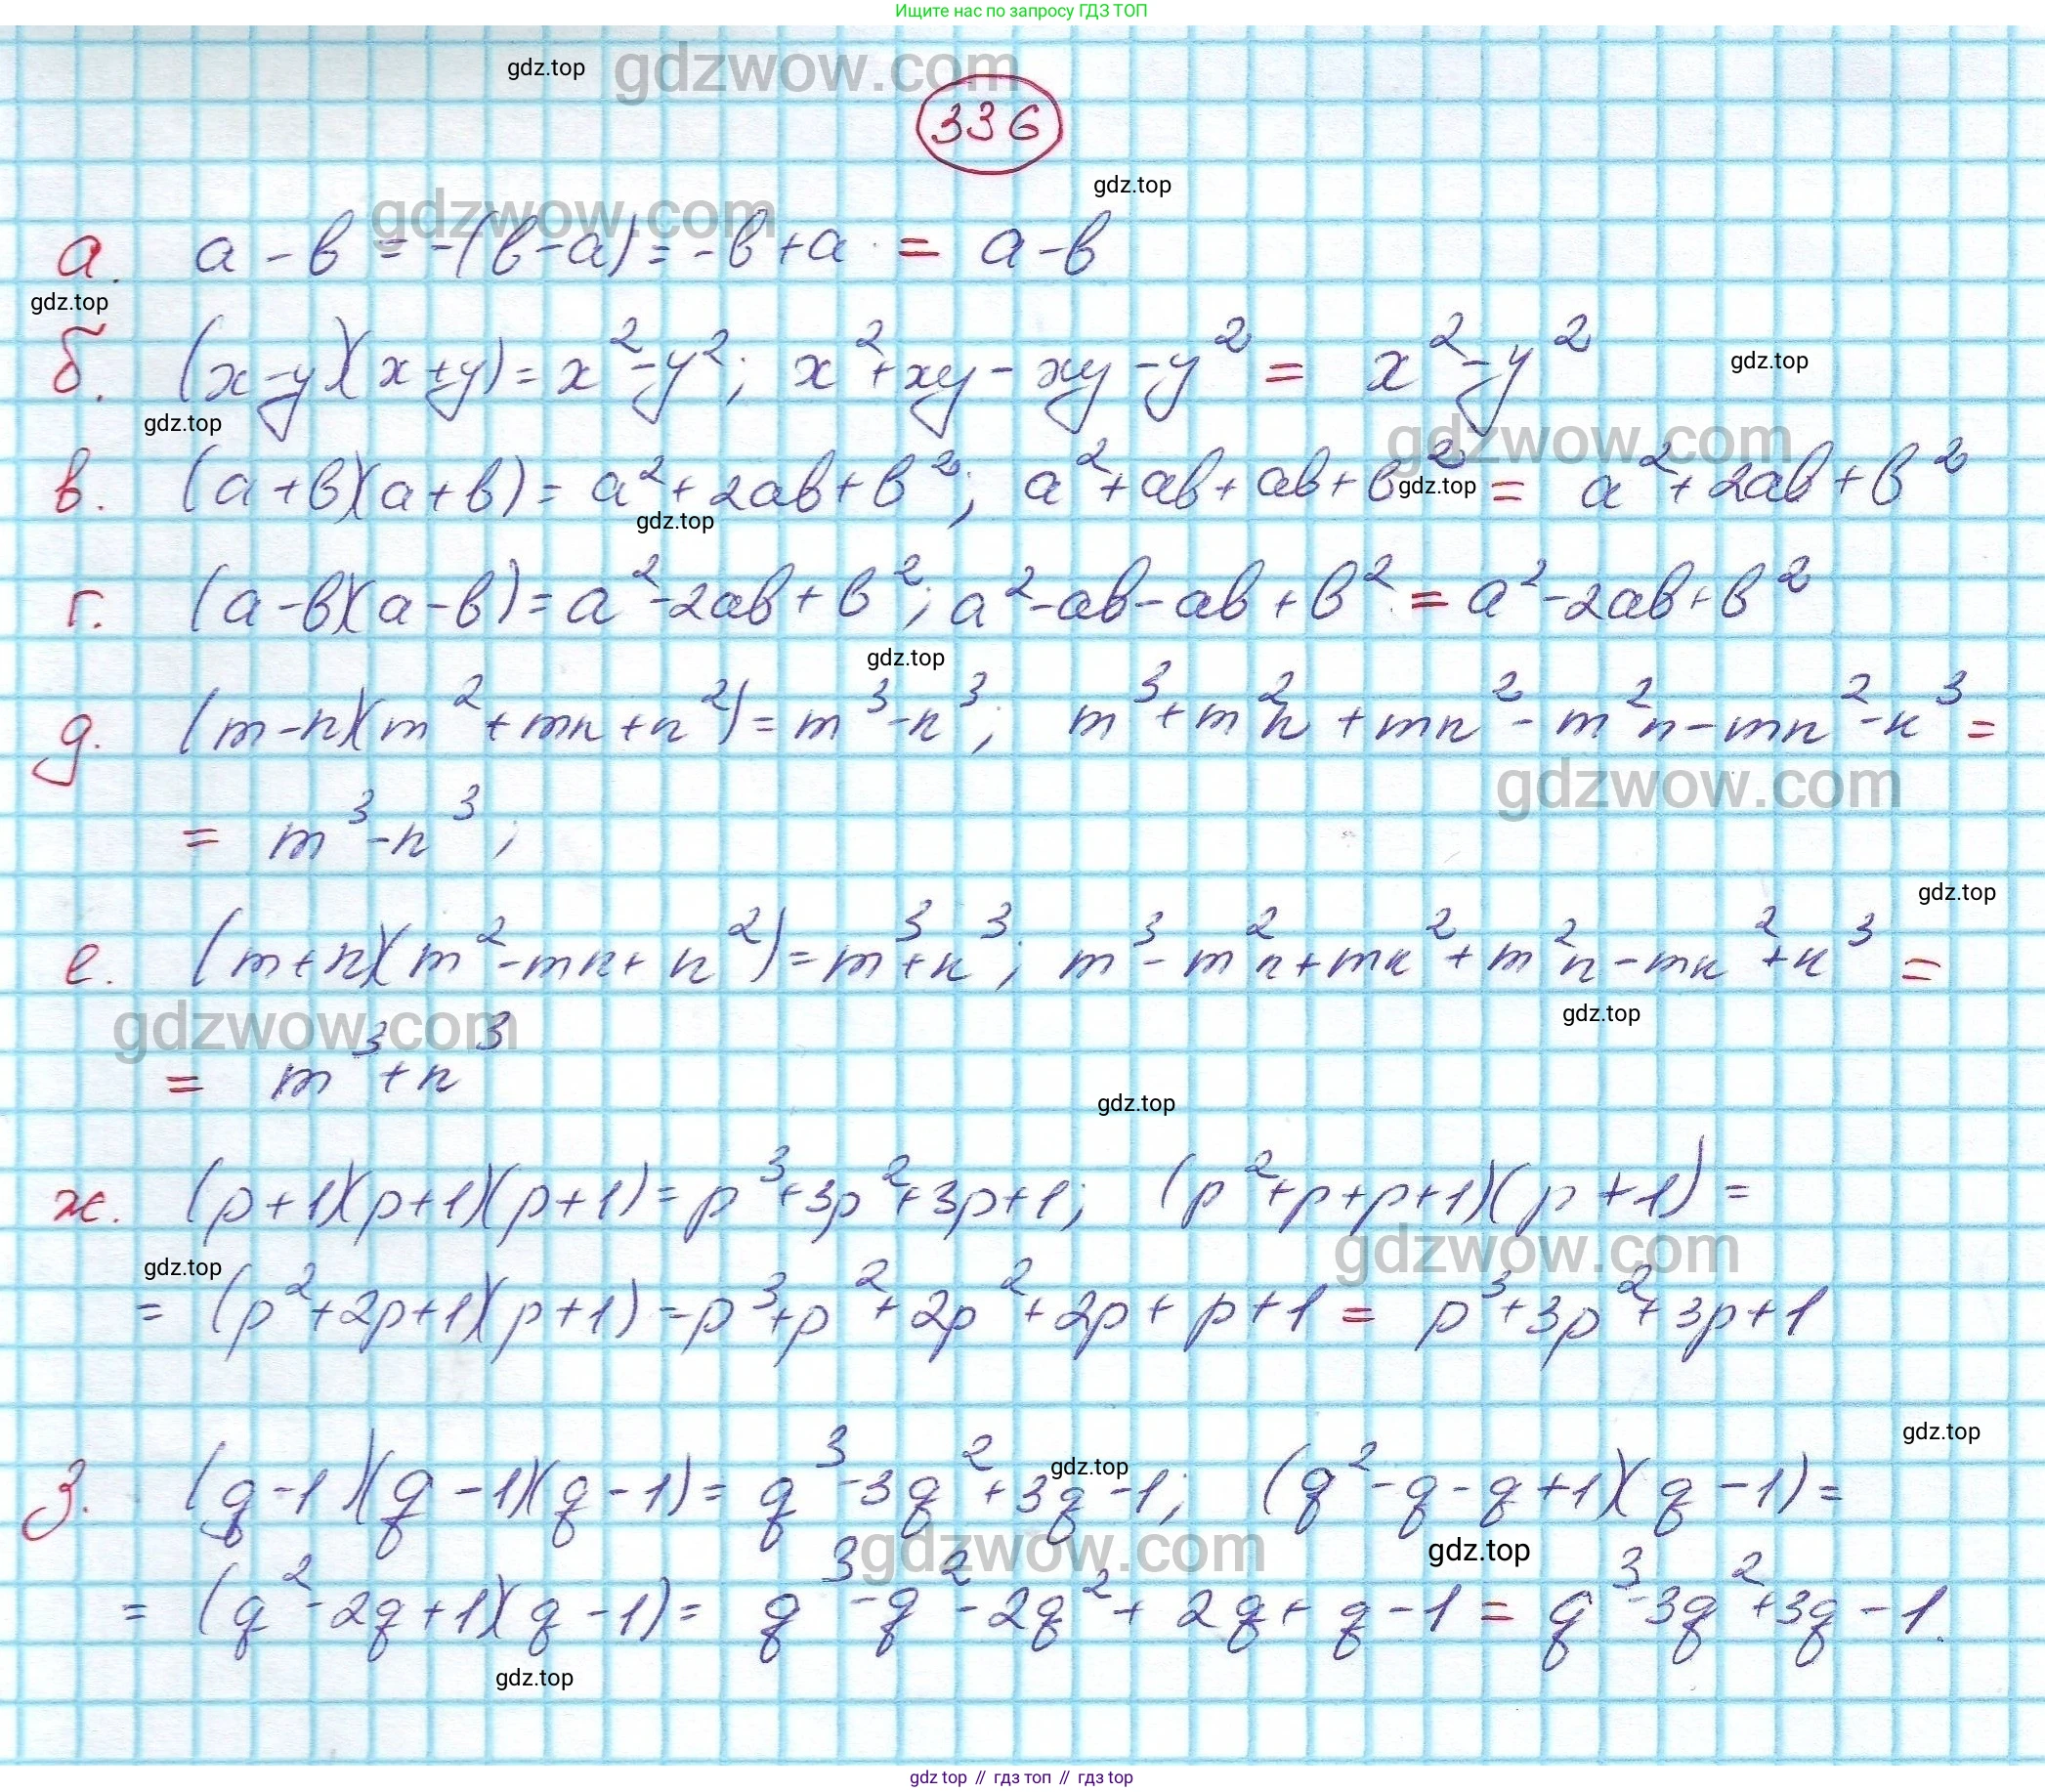 Ищите нас по запросу ГДЗ ТОП
gdz.top gdzwow.com
336
gdz.top
gdzwow.com
а. a - b = -(b-a) = -b+a = a-b
gdz.top
б. (x-y)(x+y) = x²-y²; x²+xy-xy-y² = x²-y²
gdz.top
gdz.top
gdzwow.com
в. (a+b)(a+b) = a²+2ab+b²; a²+ab+ab+b² = a²+2ab+b²
gdz.top
gdz.top
г. (a-b)(a-b) = a²-2ab+b²; a²-ab-ab+b² = a²-2ab+b²
gdz.top
д. (m-n)(m²+mn+n²) = m³-n³; m³+m²n+mn²-m²n-mn²-n³ =
gdzwow.com
= m³-n³;
gdz.top
е. (m+n)(m²-mn+n²) = m³+n³; m³-m²n+mn²+m²n-mn²+n³ =
gdz.top
gdzwow.com
= m³+n³
gdz.top
ж. (p+1)(p+1)(p+1) = p³+3p²+3p+1; (p²+p+p+1)(p+1) =
gdzwow.com
gdz.top
= (p²+2p+1)(p+1) = p³+p²+2p²+2p+p+1 = p³+3p²+3p+1
gdz.top
gdz.top
з. (q-1)(q-1)(q-1) = q³-3q²+3q-1; (q²-q-q+1)(q-1) =
gdzwow.com
gdz.top
= (q²-2q+1)(q-1) = q³-q²-2q²+2q+q-1 = q³-3q²+3q-1.
gdz.top
gdz top // гдз топ // gdz top